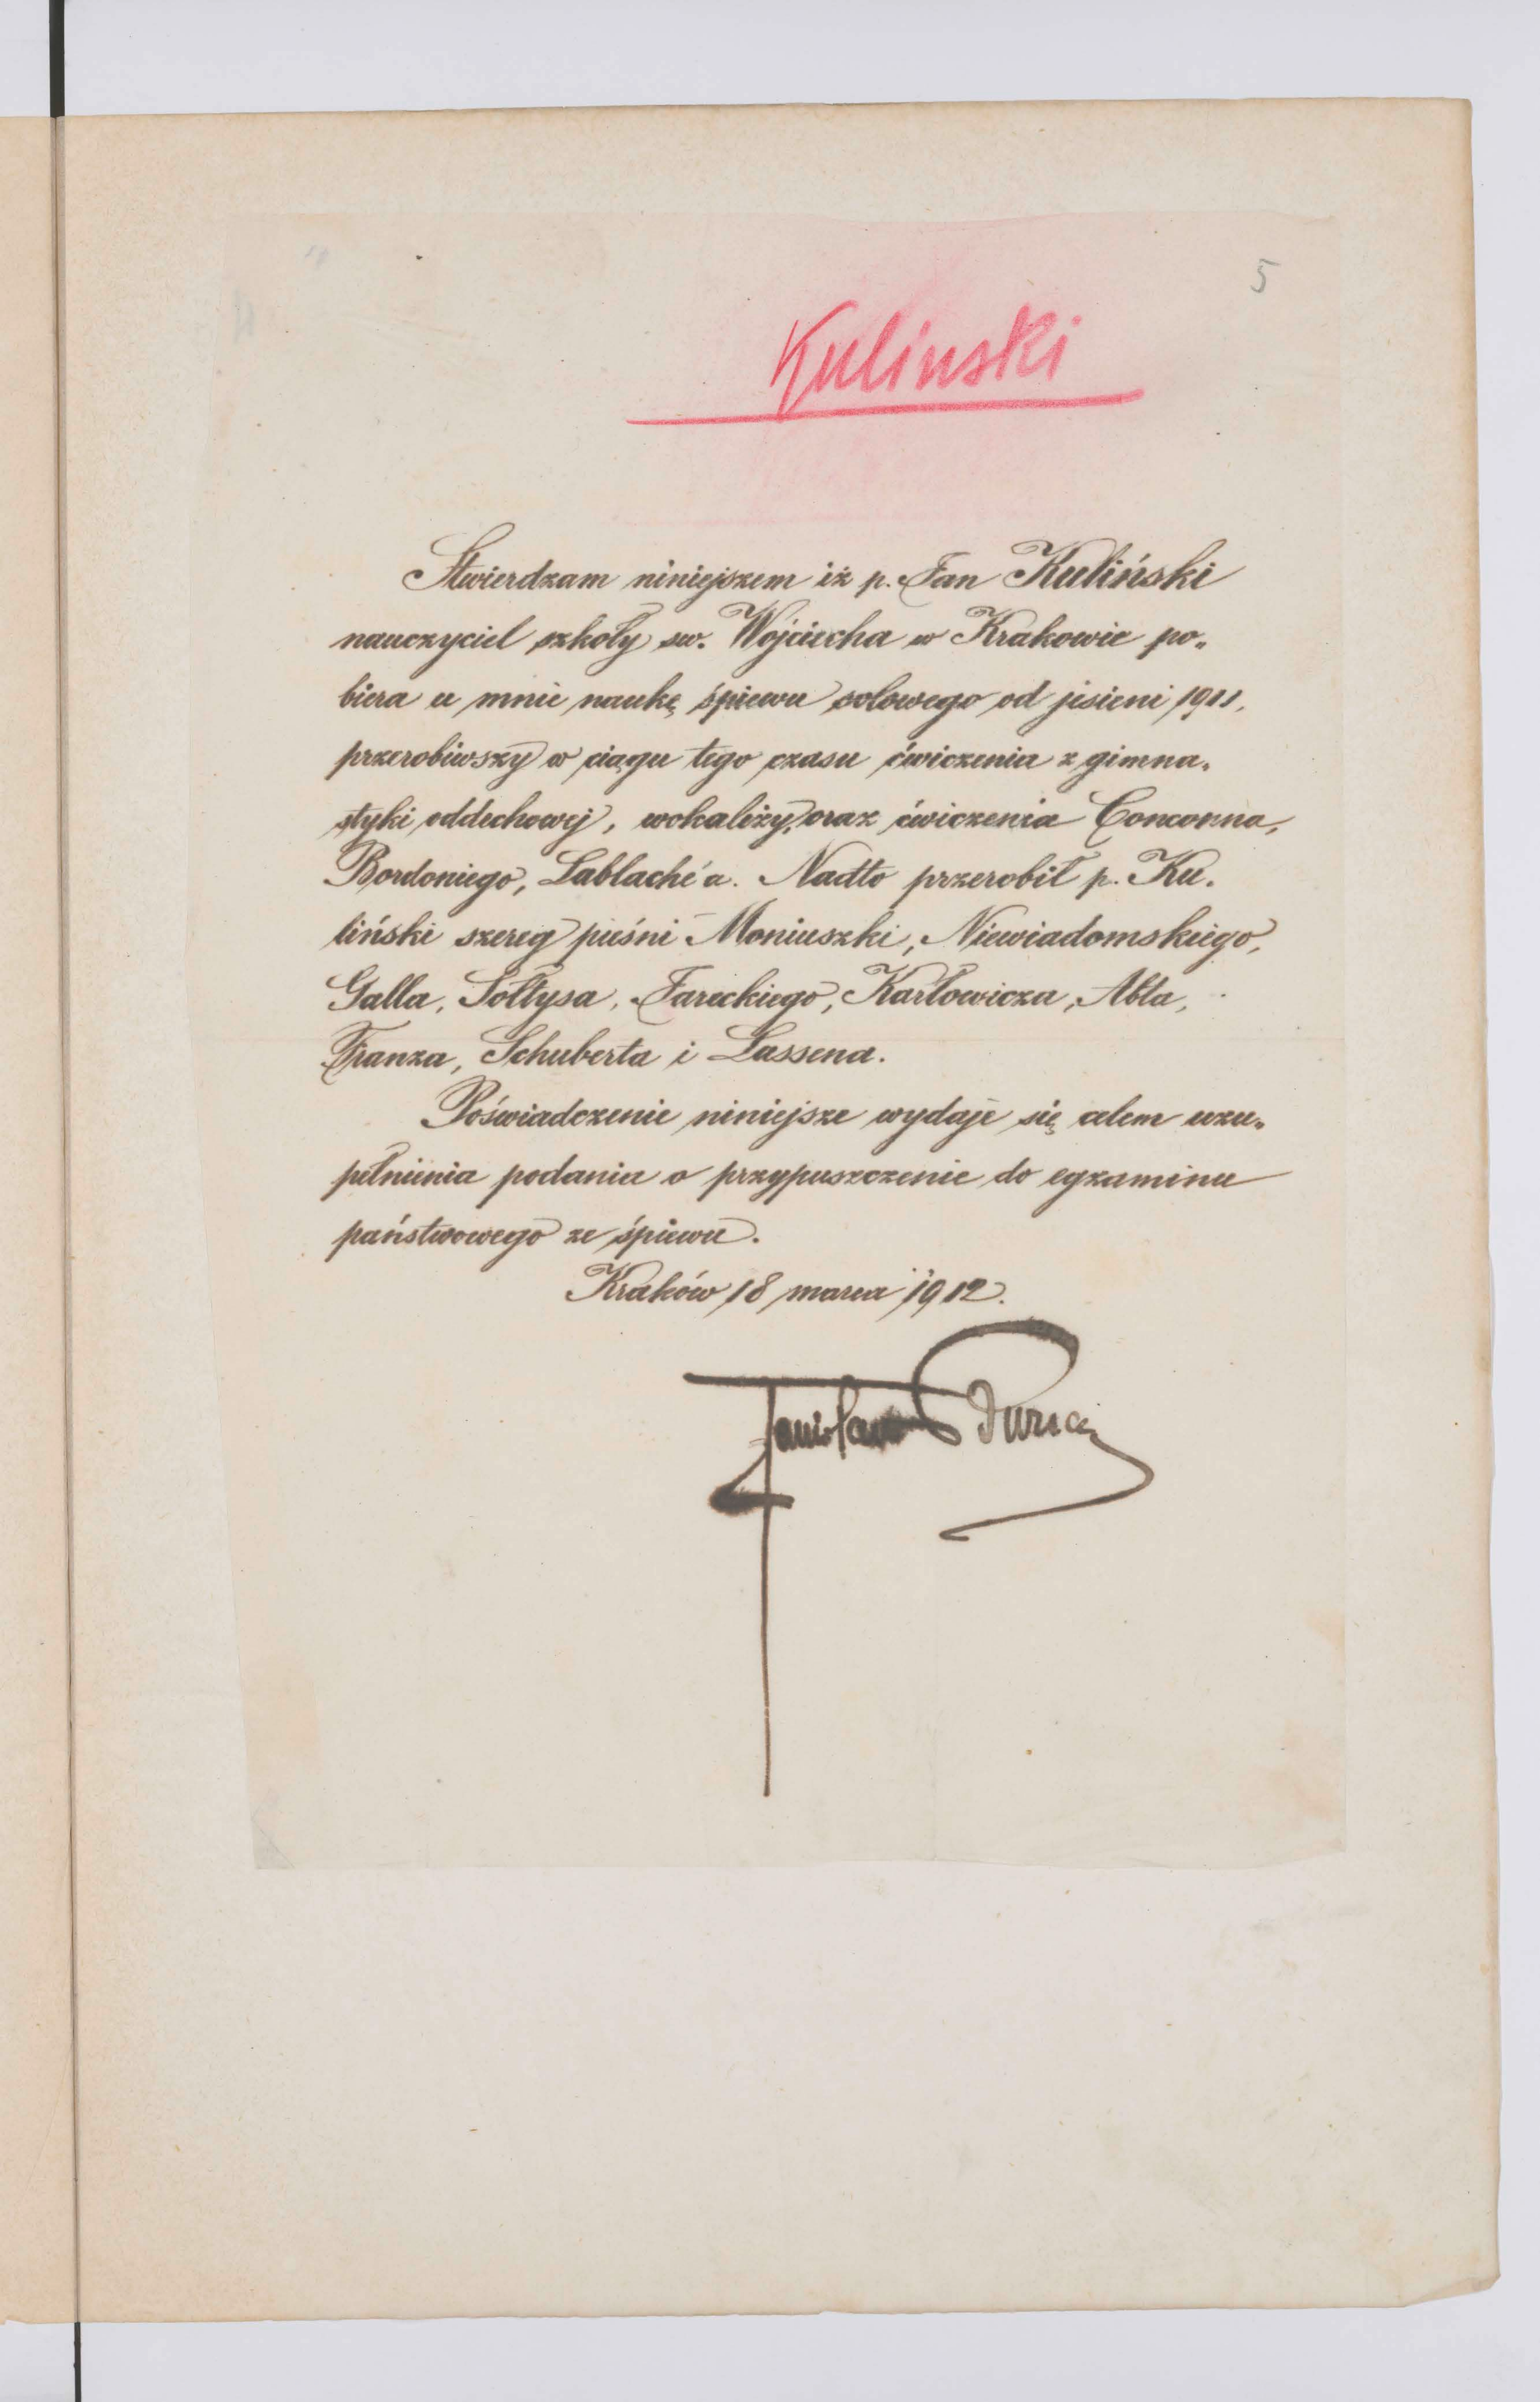 5
Kulinski
Stwierdzam niniejszem iż p. Jan Kuliński
nauczyciel szkoły św. Wojciecha w Krakowie po-
biera u mnie naukę śpiewu solowego od jesieni 1911,
przerobiwszy w ciągu tego czasu ćwiczenia z gimna-
styki oddechowej, wokalizy, oraz ćwiczenia Conconna,
Bordoniego, Lablaché'a. Nadto przerobił p. Ku-
liński szereg pieśni Moniuszki, Niewiadomskiego,
Galla, Sołtysa, Jareckiego, Karłowicza, Abta,
Franza, Schuberta i Lassena.
Poświadczenie niniejsze wydaje się celem uzu-
pełnienia podania o przypuszczenie do egzaminu
państwowego ze śpiewu.
Kraków 18 marca 1912.
Stanisław